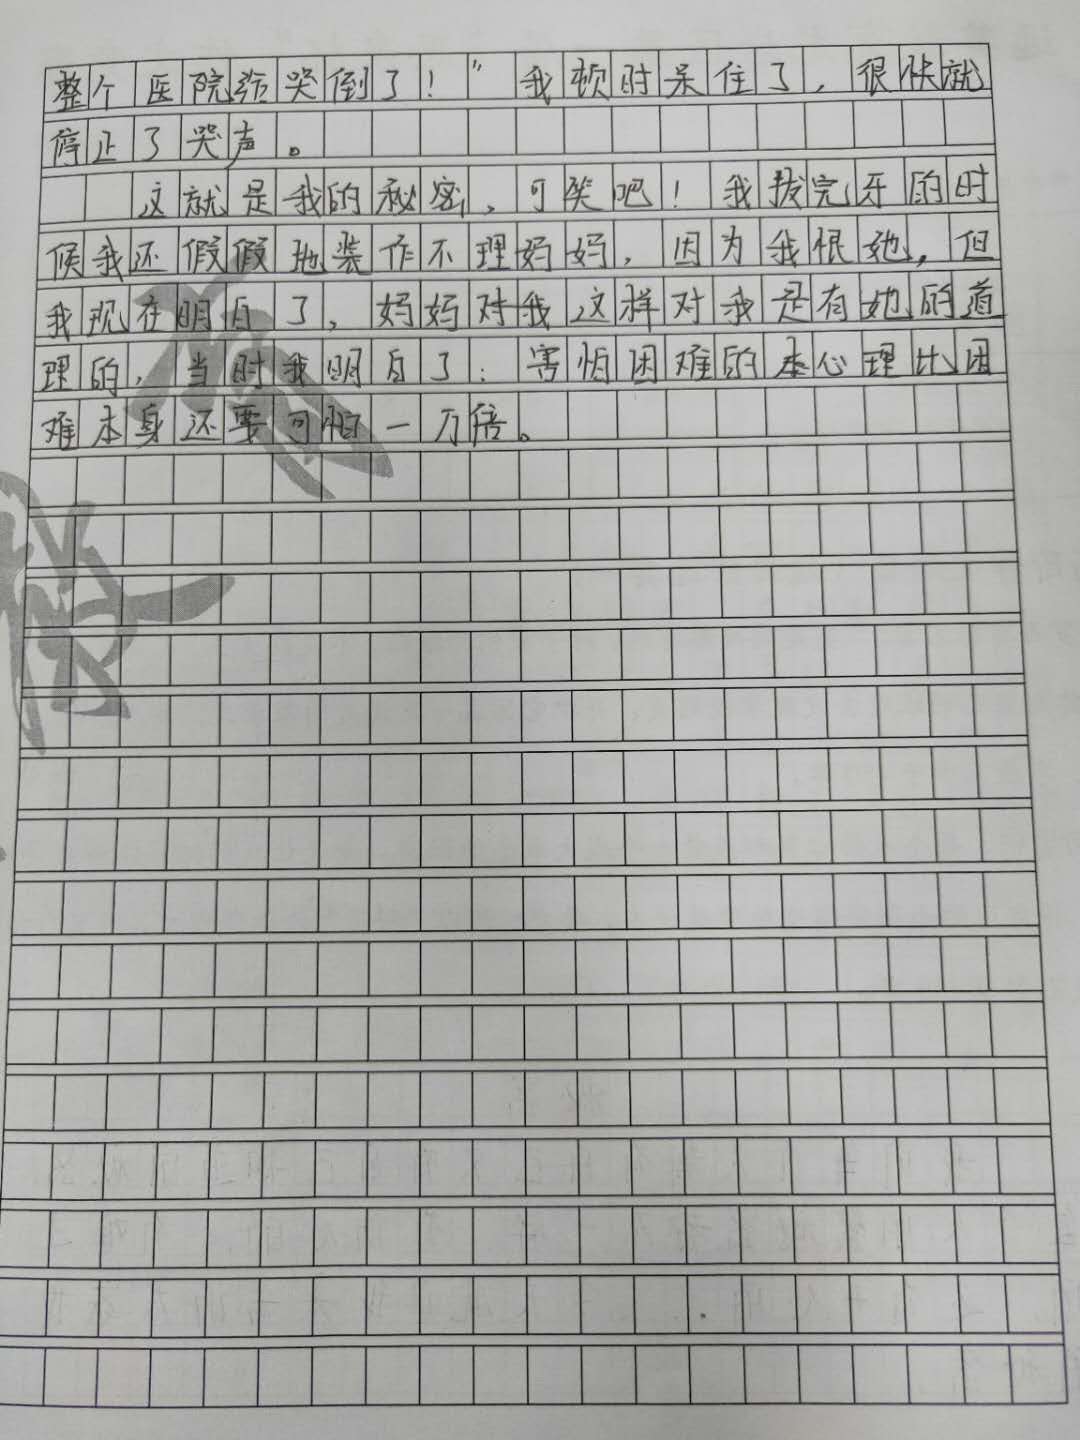 整个医院给哭倒了！”我顿时呆住了，很快就
停止了哭声。
这就是我的秘密，可笑吧！我拔完牙的时
候我还假假地装作不理妈妈，因为我恨她，但
我现在明白了，妈妈对我这样对我是有她的道
理的，当时我明白了：害怕困难的本心理比困
难本身还要可怕一万倍。